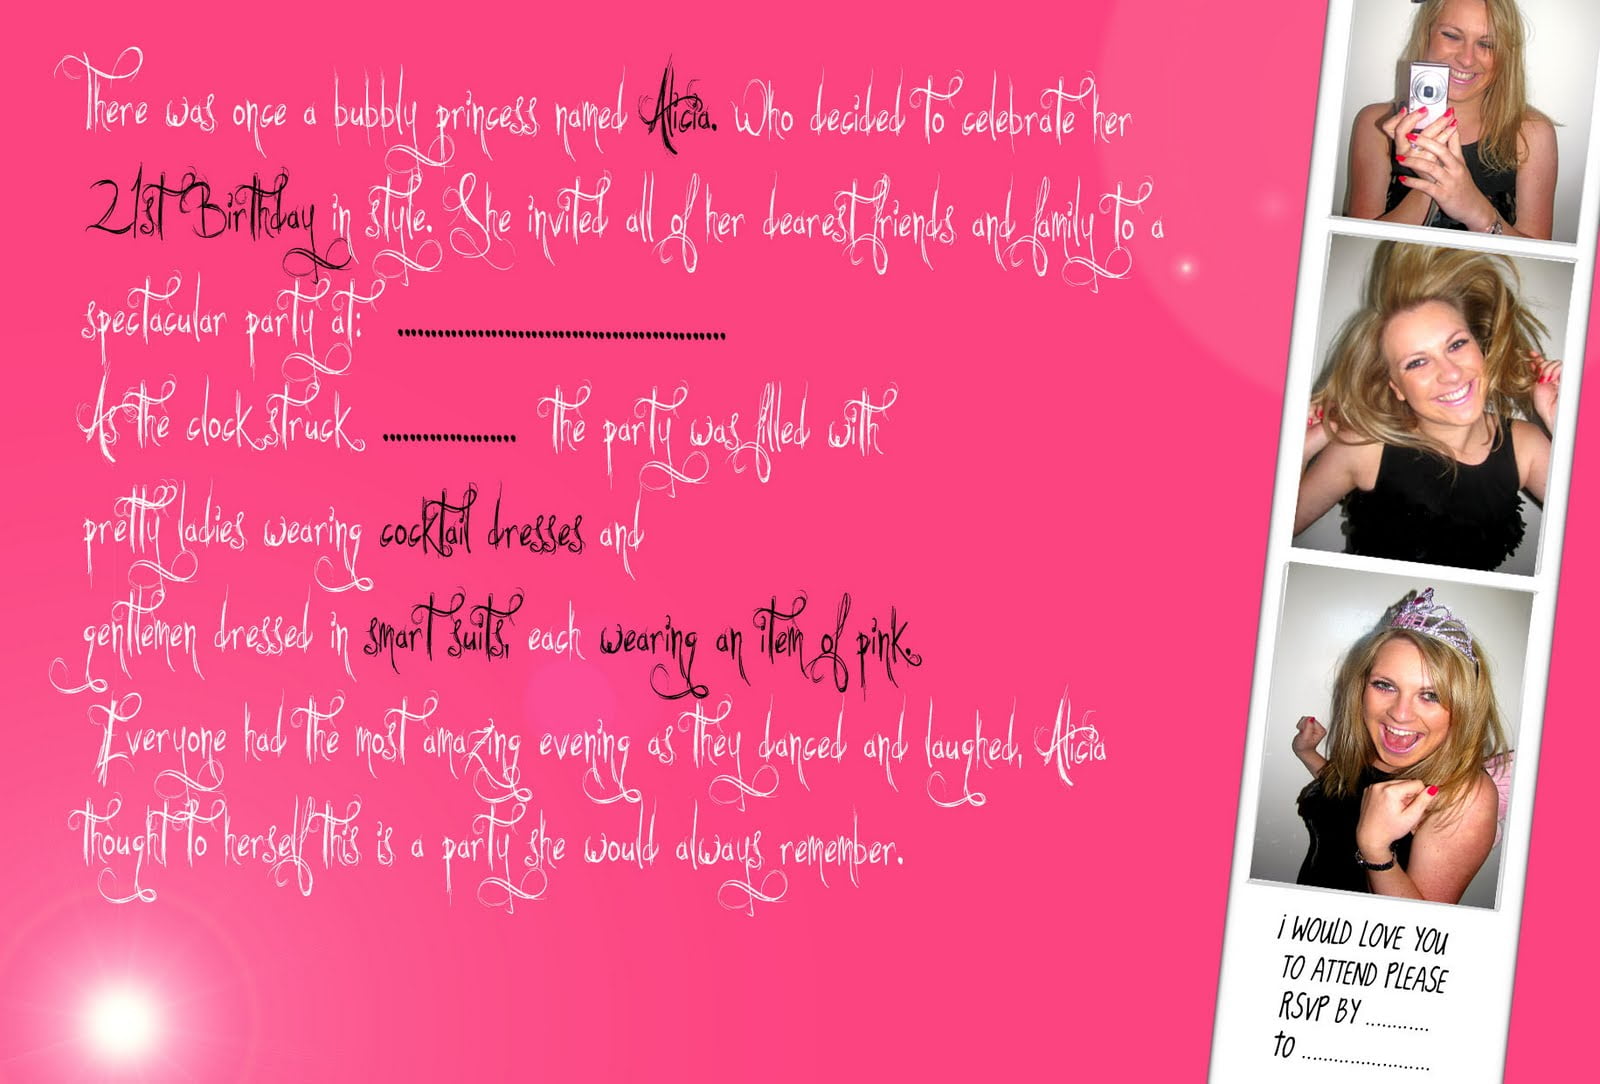 There was once a bubbly princess named Alicia. Who decided to celebrate her
21st Birthday in style. She invited all of her dearest friends and family to a
spectacular party at: ..........................................
As the clock struck ................. the party was filled with
pretty ladies wearing cocktail dresses and
gentlemen dressed in smart suits, each wearing an item of pink.
Everyone had the most amazing evening as they danced and laughed, Alicia
thought to herself this is a party she would always remember.
i WOULD LOVE YOU
TO ATTEND PLEASE
RSVP BY ............
to ........................